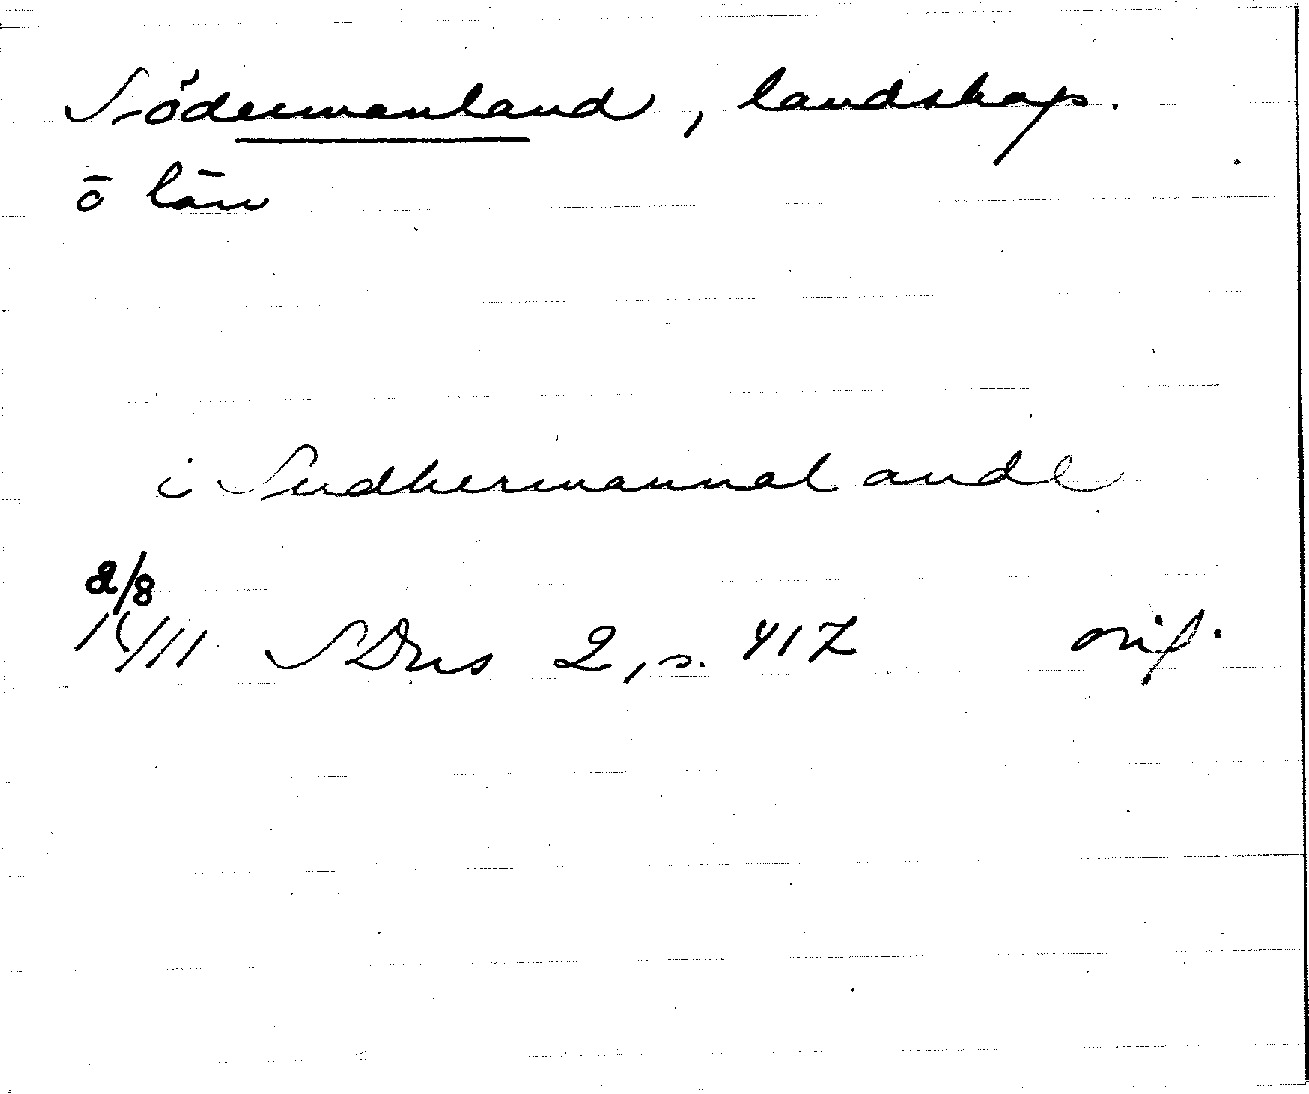 Södermanland, landskap.
o län
i Sudhermannalande
2/8
1411 SDns 2, s. 417 orig.